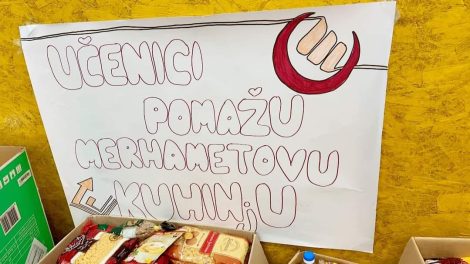 UČENICI
POMAŽU
MERHAMETOVU
KUHINjU